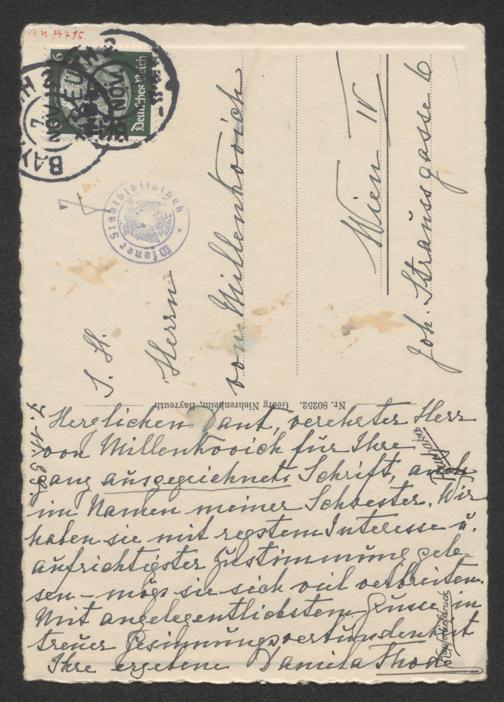 J. N. 74795
Deutsches Reich
6
BAYREUTH
Wiener Stadtbibliothek
S. H.
Herrn
von Millenkovich
Wien IV
Joh. Straussgasse 6
Nr. 80252. Georg Niehrenheim, Bayreuth
Herzlichen Dank, verehrter Herr
von Millenkovich für Ihre
ganz ausgezeichnete Schrift, auch
im Namen meiner Schwester. Wir
haben sie mit regstem Interesse u.
aufrichtigster Zustimmung gele-
sen – mög sie sich viel verbreiten.
Mit angelegentlichstem Grusse, in
treuer Gesinnungsverbundenheit
Ihre ergebene Daniela Thode